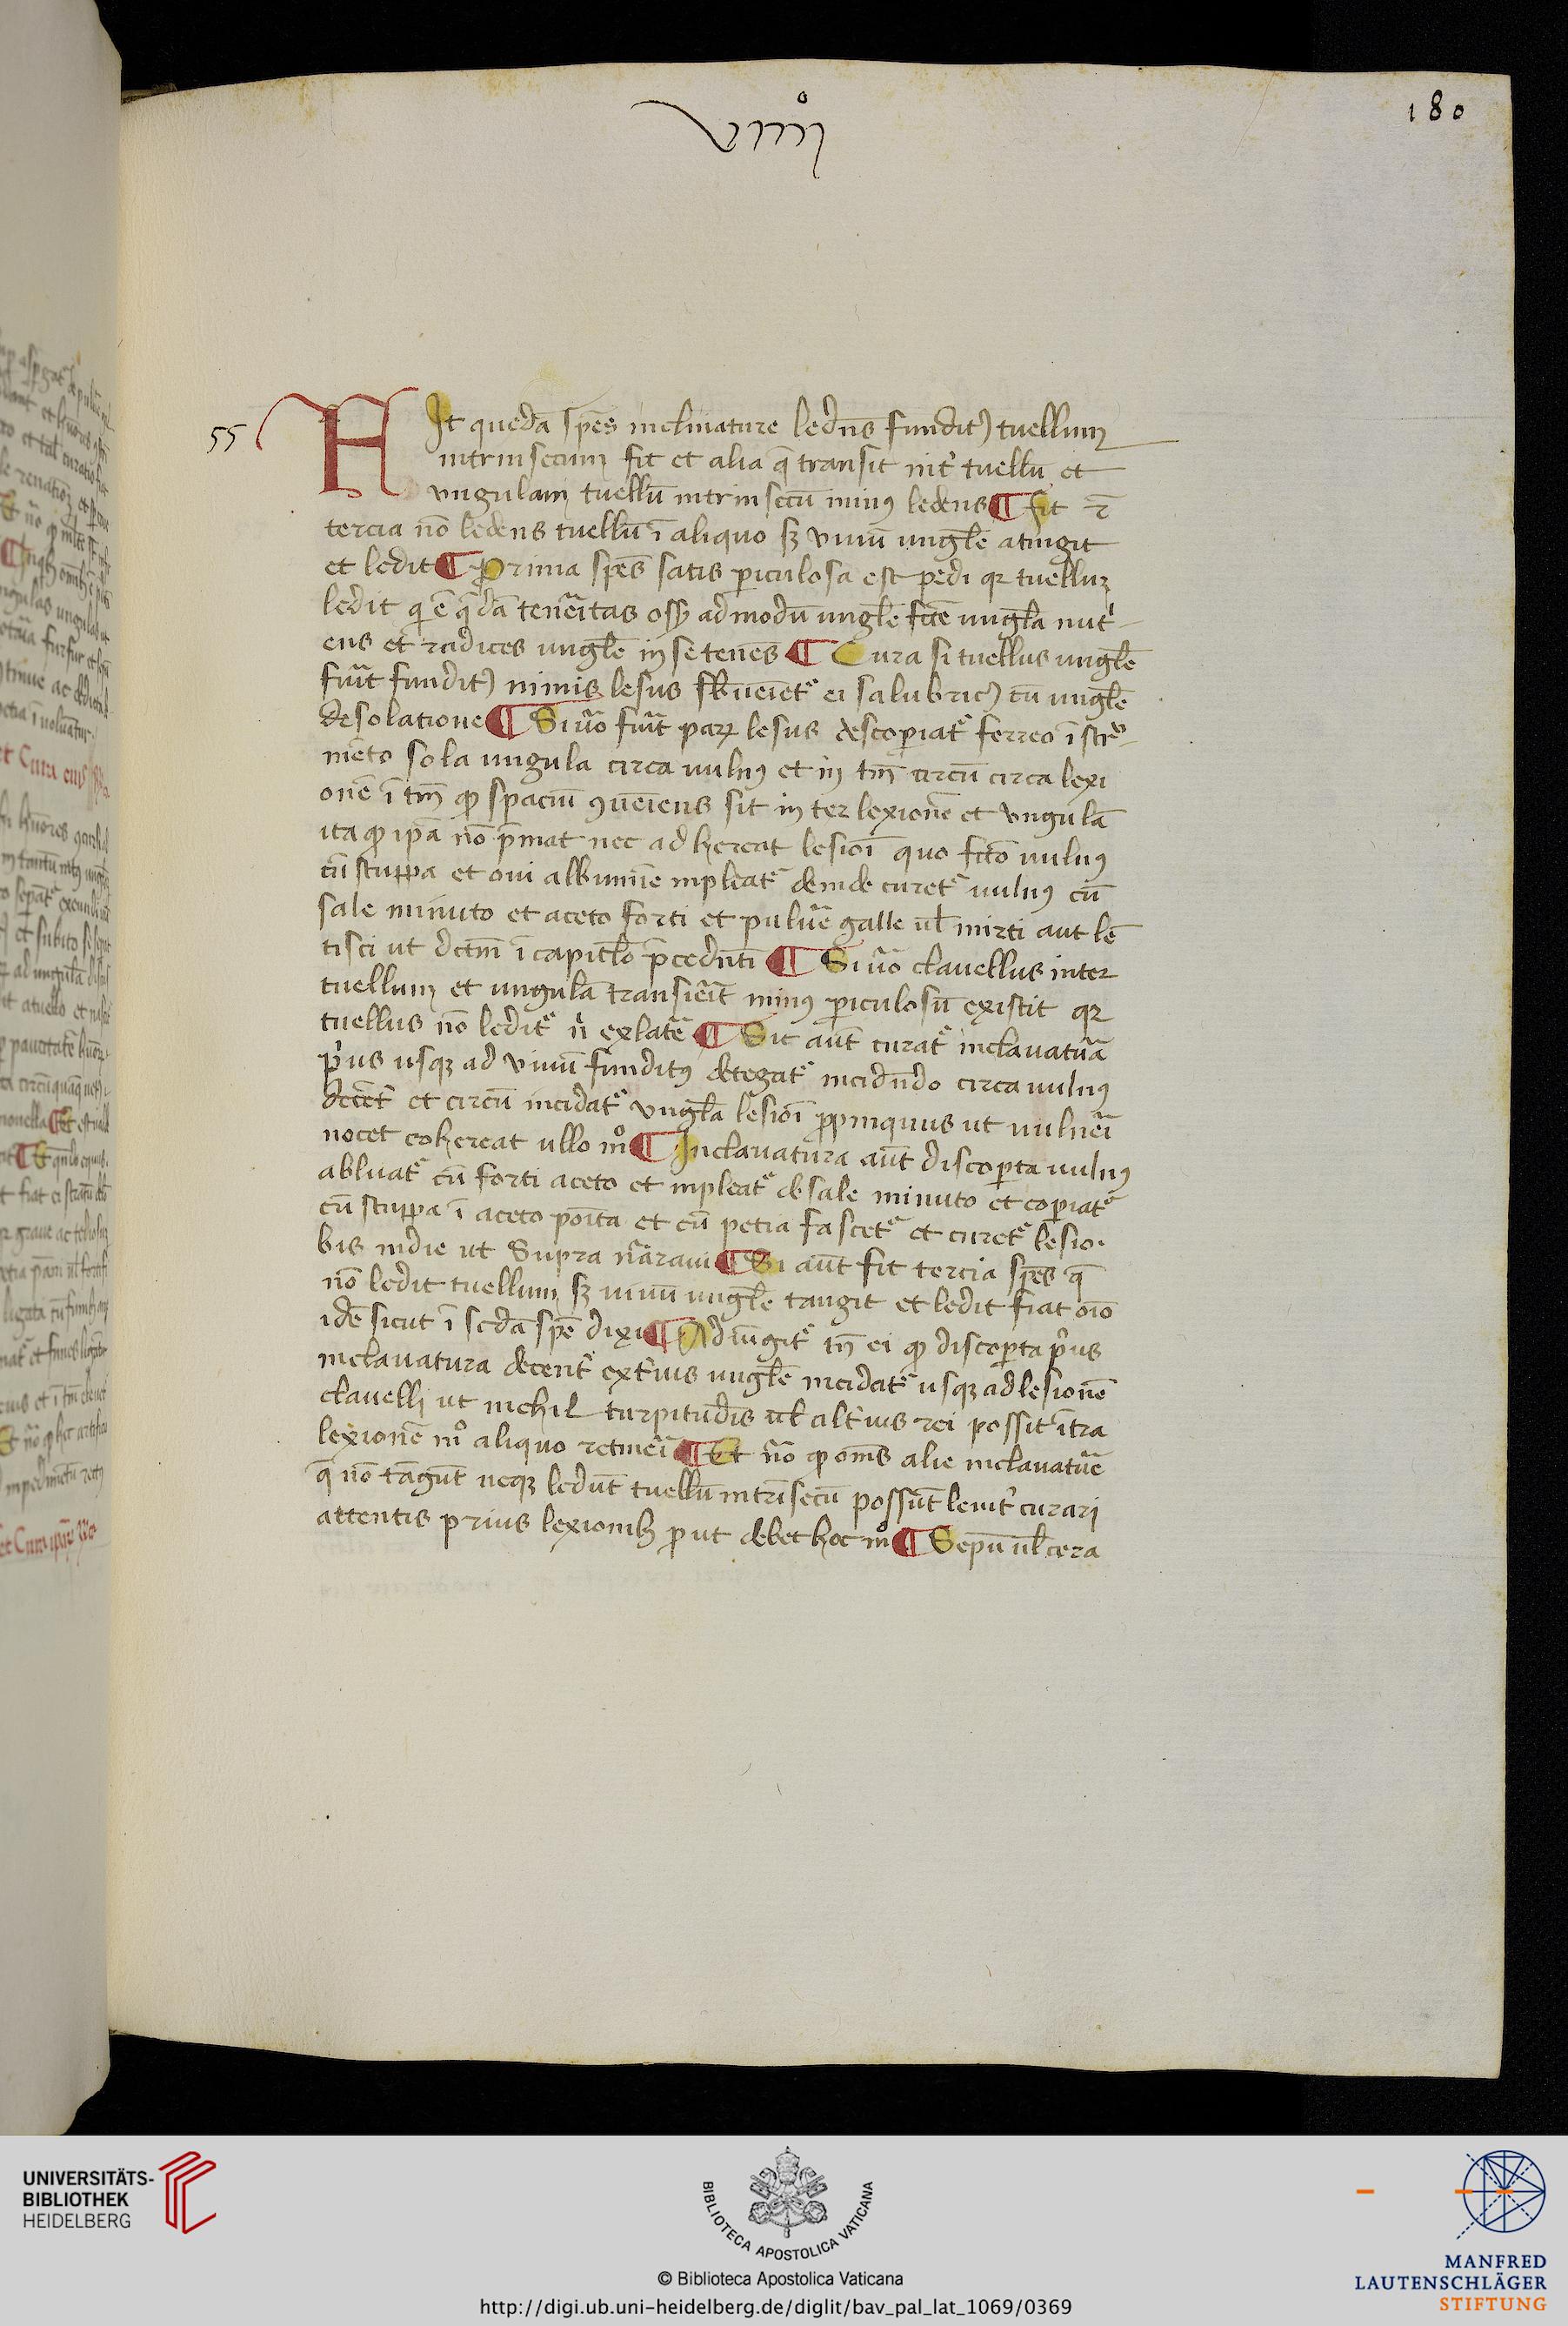 180
viiijº
55
FIt quedā spēs inclinature ledn̄s fundit⁹ tuellum
intrinsecum fit et alia q̄ transit int͛ tuellū et
vngulam tuellū intrinsecū minꝰ ledens ¶ fit ⁊
tercia nō ledens tuellū ī aliquo sꝫ viuū ungl̄e atingit
et ledit ¶ Prima spēs satis ꝑiculosa est pedi qꝛ tuelluꝫ
ledit q̇ ē q̄dā tenēitas ossꝫ admodū ungl̄e fcē ungl̄a nut͛
ens et radices ungl̄e in se tenēs ¶ Cura si tuellus ungl̄e
fūit fundit⁹ nimis lesus sb̄ueniet͛ ei salubric⁹ cū ungl̄e
desolatione ¶ Si u̅o fūit paꝝ lesus descoꝑiat͛ ferreo īstrͦ
mēto sola ungula circa uulnꝰ et in tm̄ circū circa lexi
onē ī tm̄ ꝙ spaciū ꝯueīens sit inter lexionē et vngulā
ita ꝙ ip̄a nō p̄mat nec adhereat lesioī quo fc̄o uulnꝰ
cū stuppa et oui albumīe inpleat͛ deinde curet͛ uulnꝰ cū
sale minuto et aceto forti et puluēe galle ul̄ mirti aut lē
tisci ut dctm̄ ī capitl̄o p̄cedn̄ti ¶ Si u̅o clauellus inter
tuellum et ungulā transiēit minꝰ ꝑiculosū existit qꝛ
tuellus nō ledit͛ n͛ ex latē ¶ Sic aūt curat͛ inclauatūa
p͛us usqꝫ ad viuū funditꝰ detegat͛ incidn̄do circa uulnꝰ
decēt͛ et circū incidat͛ vngl̄a lesioī ꝓpinquius ut uulnēi
nocet cohereat ullo mͦ ¶ Inclauatura aūt discoꝑta uulnꝰ
abluat͛ cū forti aceto et inpleat͛ de sale minuto et coꝑiat͛
cū stuppa ī aceto poīta et cū petia fascet͛ et curet͛ lesio·
bis in die ut Supra n̄araui ¶ Si aūt fit tercia spēs q̄
nō ledit tuellum sꝫ uiuū ungl̄e tangit et ledit fiat oīo
idē sicut ī scd̄a spē dixi ¶ Ad iūgit͛ tn̄ ei ꝙ discoꝑta p͛us
inclauatura decent͛ ext͛ius ungl̄e incidat͛ usqꝫ ad lesionē
clauelli ut nichil turpitudīs ul̄ alt͛ius rei possit ītra
lexionē mͦ aliquo retinēi ¶ Et n̄o ꝙ om̄s alie inclauatūe
q̄ nō tāgūt neqꝫ ledūt tuellū intrīsecū possūt leuit͛ curari
attentis prius lexionibꝫ ꝓut debet hoc mͦ ¶ Sepū ul̄ cera
UNIVERSITÄTS-
BIBLIOTHEK
HEIDELBERG
BIBLIOTECA APOSTOLICA VATICANA
© Biblioteca Apostolica Vaticana
http://digi.ub.uni-heidelberg.de/diglit/bav_pal_lat_1069/0369
MANFRED
LAUTENSCHLÄGER
STIFTUNG